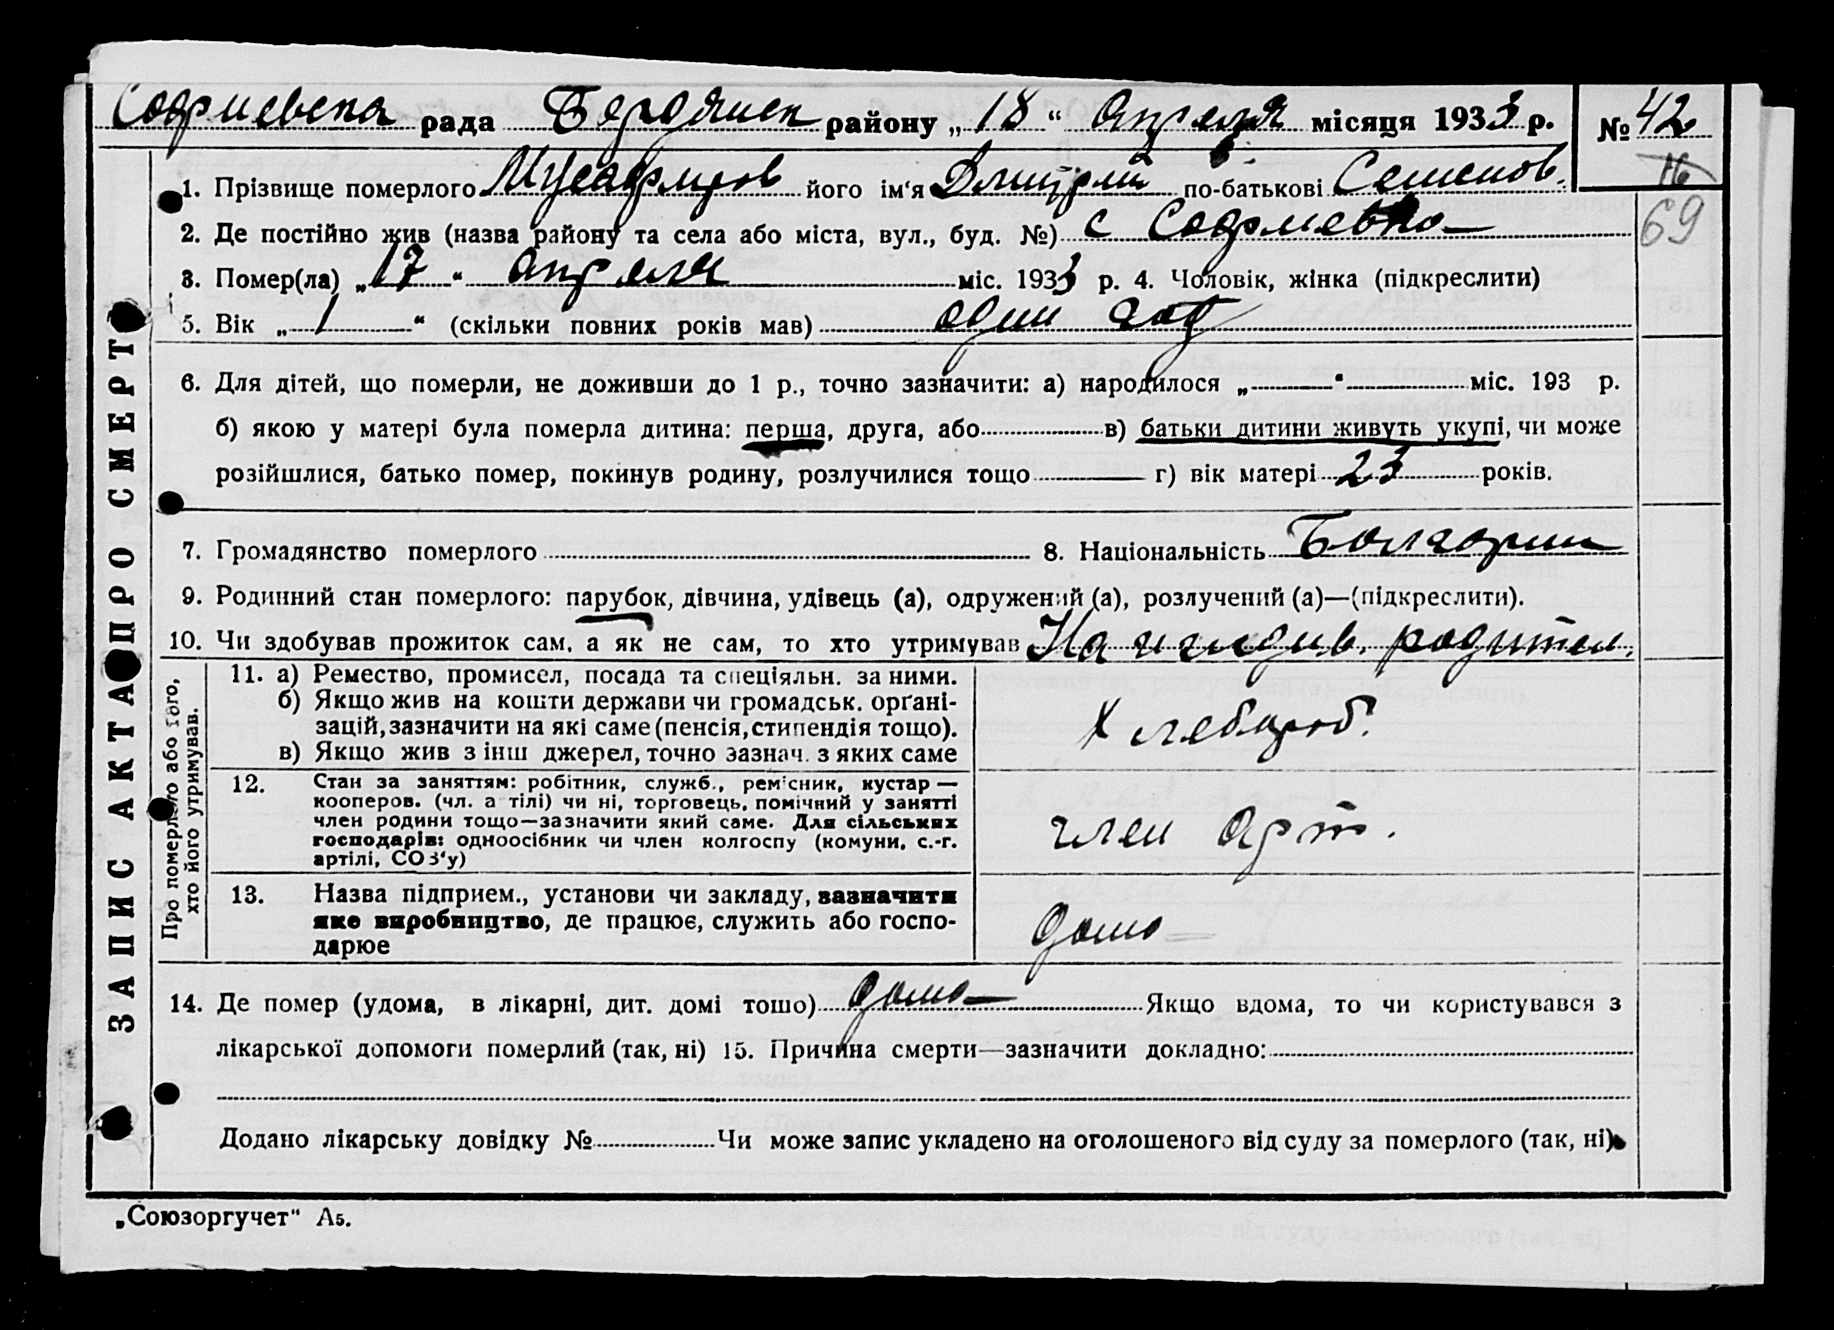 Софиевска рада Бердянск району „18“ Апреля місяця 1933 р. № 42
16
1. Прізвище померлого Мусафиров його ім'я Дмитрий по-батькові Семенов.
69
2. Де постійно жив (назва району та села або міста, вул., буд. №) с Софиевка
3. Помер(ла) „17“ апреля міс. 1933 р. 4. Чоловік, жінка (підкреслити)
5. Вік „1“ (скільки повних років мав) один год
6. Для дітей, що померли, не доживши до 1 р., точно зазначити: а) народилося „ “ міс. 193 р.
б) якою у матері була померла дитина: перша, друга, або в) батьки дитини живуть укупі, чи може
розійшлися, батько помер, покинув родину, розлучилися тощо г) вік матері 23 років.
7. Громадянство померлого 8. Національність Болгарин
9. Родинний стан померлого: парубок, дівчина, удівець (а), одружений (а), розлучений (а)—(підкреслити).
10. Чи здобував прожиток сам, а як не сам, то хто утримував На иждив. родител.
ЗАПИС АКТА ПРО СМЕРТЬ
Про померлого або того, хто його утримував.
11. а) Ремество, промисел, посада та спеціяльн. за ними.
б) Якщо жив на кошти держави чи громадськ. орґані-
зацій, зазначити на які саме (пенсія, стипендія тощо).
в) Якщо жив з інш джерел, точно зазнач. з яких саме
Хлебороб.
12. Стан за заняттям: робітник, служб., ремісник, кустар—
кооперов. (чл. артілі) чи ні, торговець, помічний у занятті
член родини тощо—зазначити який саме. Для сільських
господарів: одноосібник чи член колгоспу (комуни, с.-г.
артілі, СОЗ'у)
член Арт.
13. Назва підприєм., установи чи закладу, зазначити
яке виробництво, де працює, служить або госпо-
дарює
дома
14. Де помер (удома, в лікарні, дит. домі тощо) дома Якщо вдома, то чи користувався з
лікарської допомоги померлий (так, ні) 15. Причина смерти—зазначити докладно:
Додано лікарську довідку № Чи може запис укладено на оголошеного від суду за померлого (так, ні)
„Союзоргучет" А5.